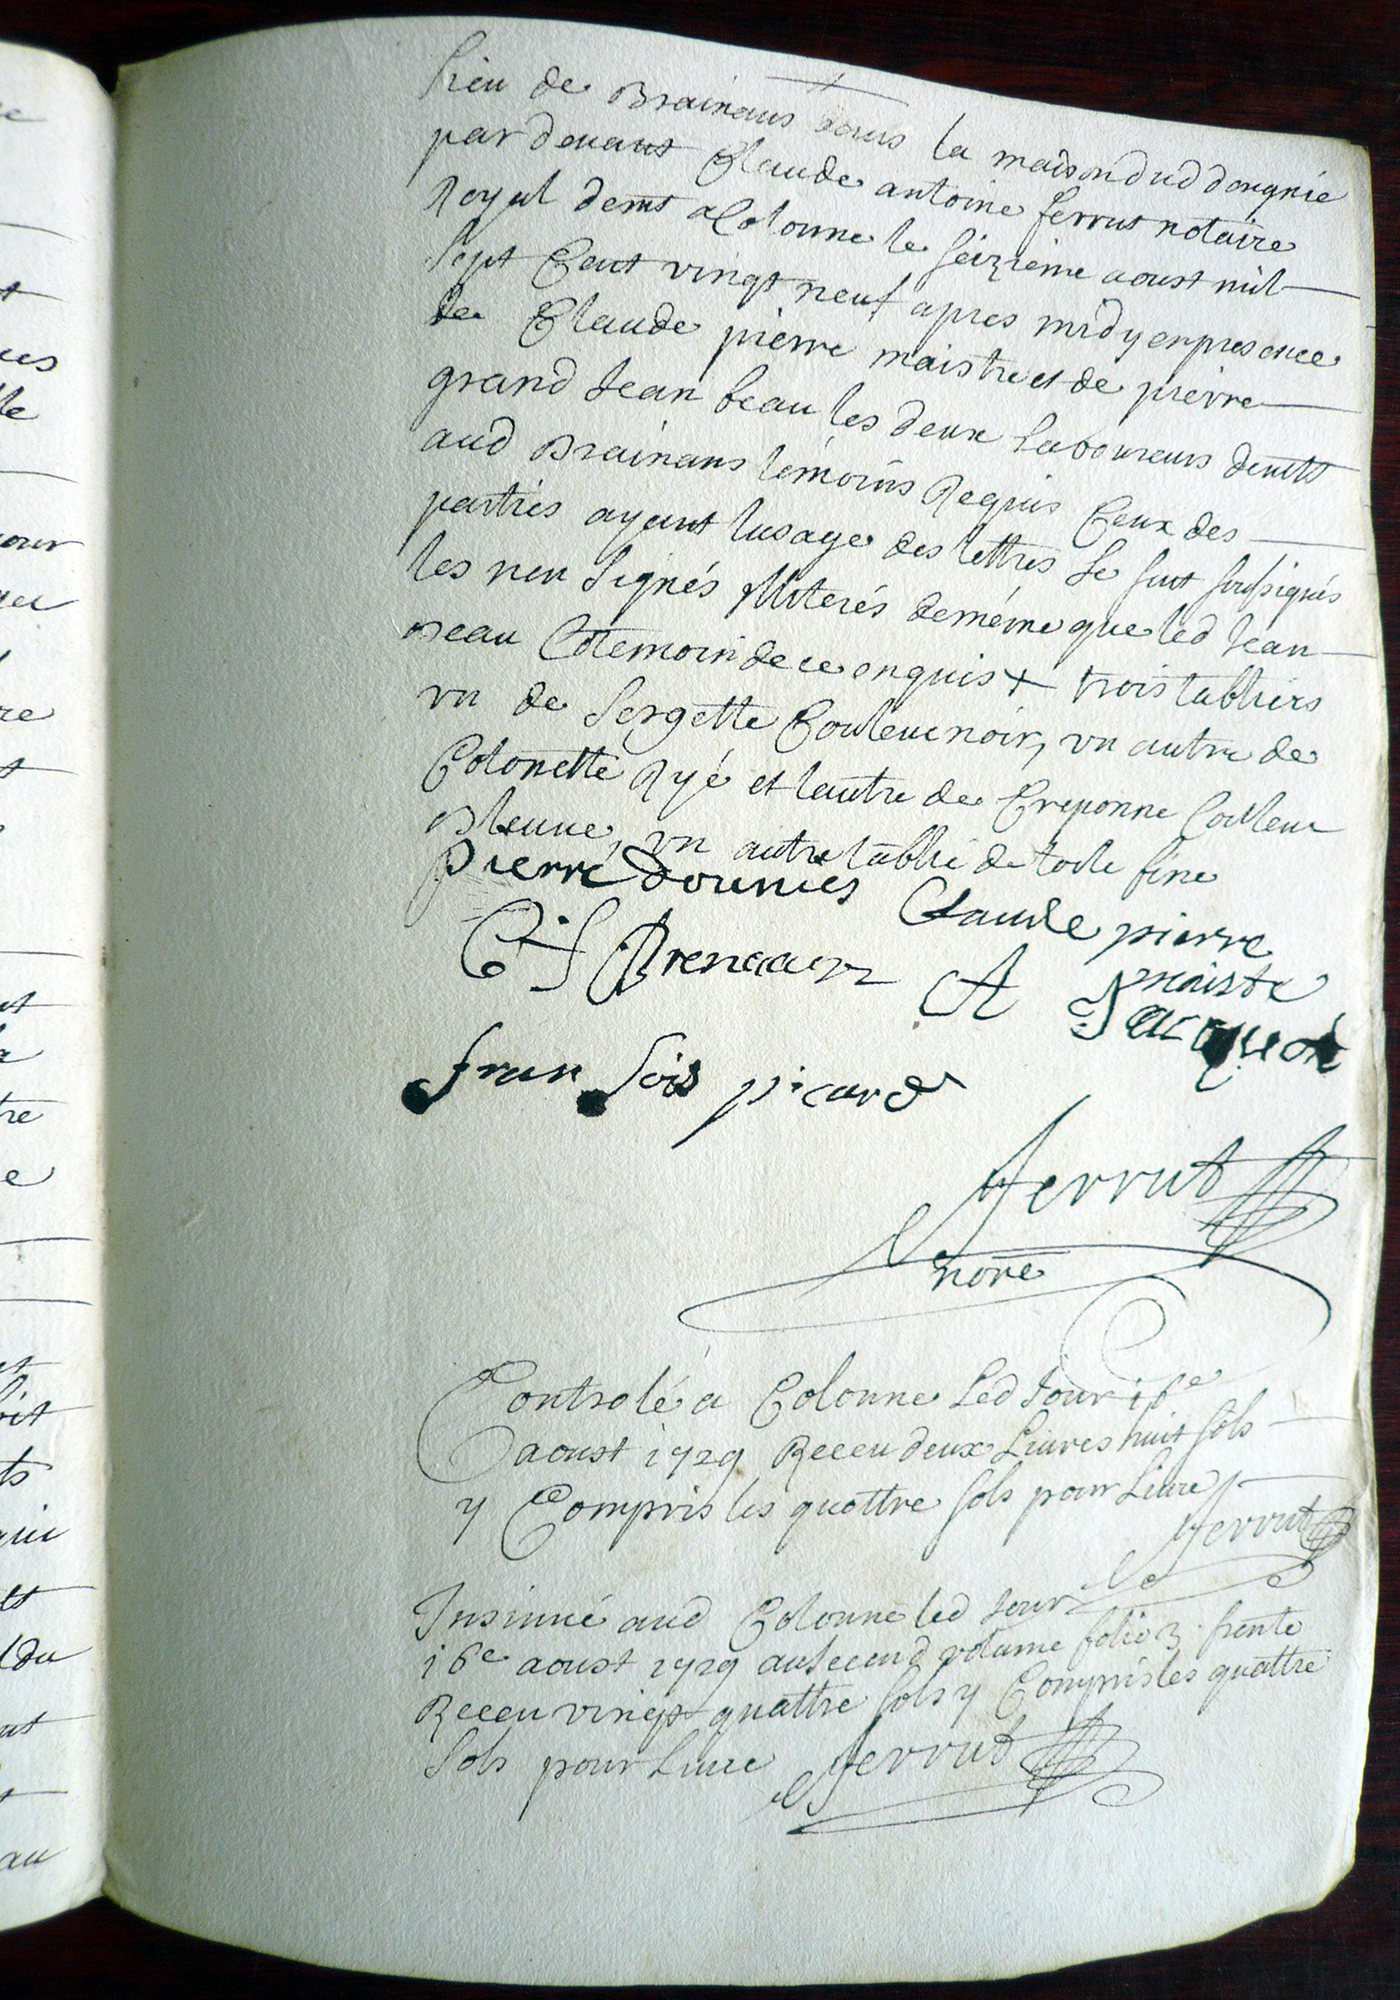 lieu de Brainans dans la maison dud dougnie
par devant Claude antoine ferrut notaire
Royal demt a Colonne le seizième aoust mil
sept Cent vingt neuf apres midy en presence
de Claude pierre maistre et de pierre
grand Jean beau les deux laboureurs demts
aud Brainans temoins Requis Ceux des
parties ayant lusage des lettres se sont soussignés
les non signés illiterés de méme que led Jean
Beau temoin de ce enquis + trois tabliers
vn de sergette Couleur noir, vn autre de
Cotonette Ryé et lautre de Creponne Couleur
Bleuue, vn autre tablié de toile fine
pierre dounies Claude pierre
maistre
C f Prenaan A Jacquot
fran sois picard
ferrut
nore
Controlé a Colonne led Jour 16e
aoust 1729 Receu deux Livres huit sols
y Compris les quattre sols pour Livre
ferrut
Insinué aud Colonne led Jour
16e aoust 1729 au second volume folio 3.
Receu vingt quattre sols y Compris les quattre
sols pour Livre ferrut